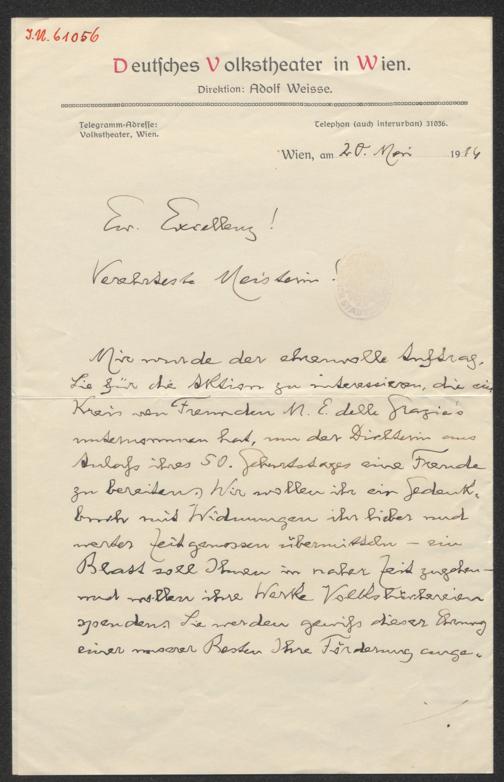 J.N. 61056
Deutsches Volkstheater in Wien.
Direktion: Adolf Weisse.
Telegramm-Adresse:
Volkstheater, Wien.
Telephon (auch interurban) 31036.
Wien, am 20. Mai 1914
Ew. Excellenz!
Verehrteste Meisterin!
Mir wurde der ehrenvolle Auftrag,
Sie für die Aktion zu interessieren, die ein
Kreis von Freunden M. E. delle Grazie's
unternommen hat, um der Dichterin aus
Anlaß ihres 50. Geburtstages eine Freude
zu bereiten. Wir wollen ihr ein Gedenk-
buch mit Widmungen ihr lieber und
werter Zeitgenossen übermitteln – ein
Blatt soll Ihnen in naher Zeit zugehen –
und wollen ihre Werke Volksbüchereien
spenden. Sie werden gewiß dieser Ehrung
einer unserer Besten Ihre Förderung ange-